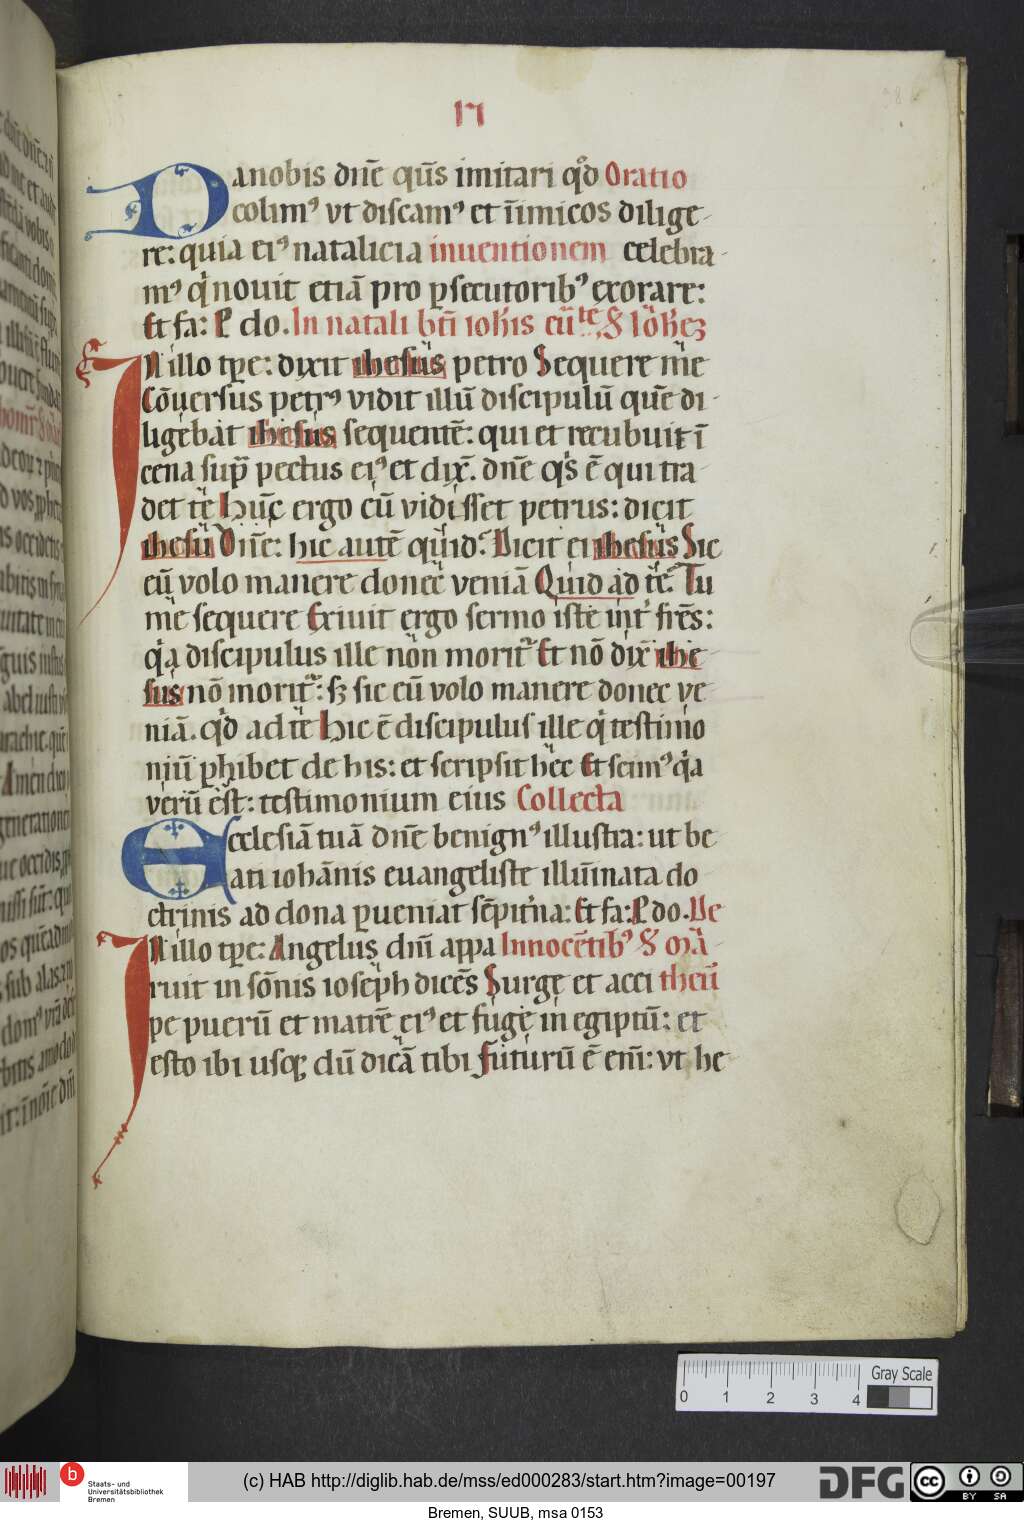 17
Da nobis dn̄e qūs imitari qd̊ Oratio
colim⁹ vt discam⁹ et īimicos dilige-
re: quia ei⁹ natalicia inuentionem celebra-
m⁹ qͥ nouit etiā pro ꝑsecutorib⁹ exorare:
Et fa: P do. In natali bt̄i ioħis eūᵗᵉ. S Ioħeʒ
In illo tꝑe: dixit ihesus petro Sequere me
Cōuersus petr⁹ vidit illū discipulū quē di-
ligebat ihesus sequentē: qui et recubuit ī
cena suꝑ pectus ei⁹ et dix̄. dn̄e qͥs ē qui tra-
det te Hūc ergo cū vidisset petrus: dicit
ihesu Dn̄e: hic autē quid. Dicit ei ihesus Sic
eū volo manere donec veniā Quid ad te. Tu
me sequere Exiuit ergo sermo iste int̄ frēs:
qͥa discipulus ille non moritᷣ Et nō dix̄ ihe
sus nō moritᷣ: sʒ sic eū volo manere donec ve-
niā. qd̊ ad te Hic ē discipulus ille qͥ testimo
niū ꝑhibet de his: et scripsit hec Et scim⁹ qͥa
verū est: testimonium eius Collecta
Ecclesiā tuā dn̄e benign⁹ illustra: ut be
ati iohānis euangeliste illūinata do
ctrinis ad dona ꝑueniat sēpit̄na: Et fa: P do. De
In illo tꝑe: Angelus dn̄i appa Innocētib⁹ S mā-
ruit in sōnis ioseph dicēs Surge et acci theū
pe puerū et matrē ei⁹ et fuge in egiptū: et
esto ibi usqꝫ dū dicā tibi Futurū ē em̄: vt he-
0 1 2 3 4 Gray Scale
b Staats- und
Universitätsbibliothek
Bremen
(c) HAB http://diglib.hab.de/mss/ed000283/start.htm?image=00197
DFG
cc BY SA
Bremen, SUUB, msa 0153